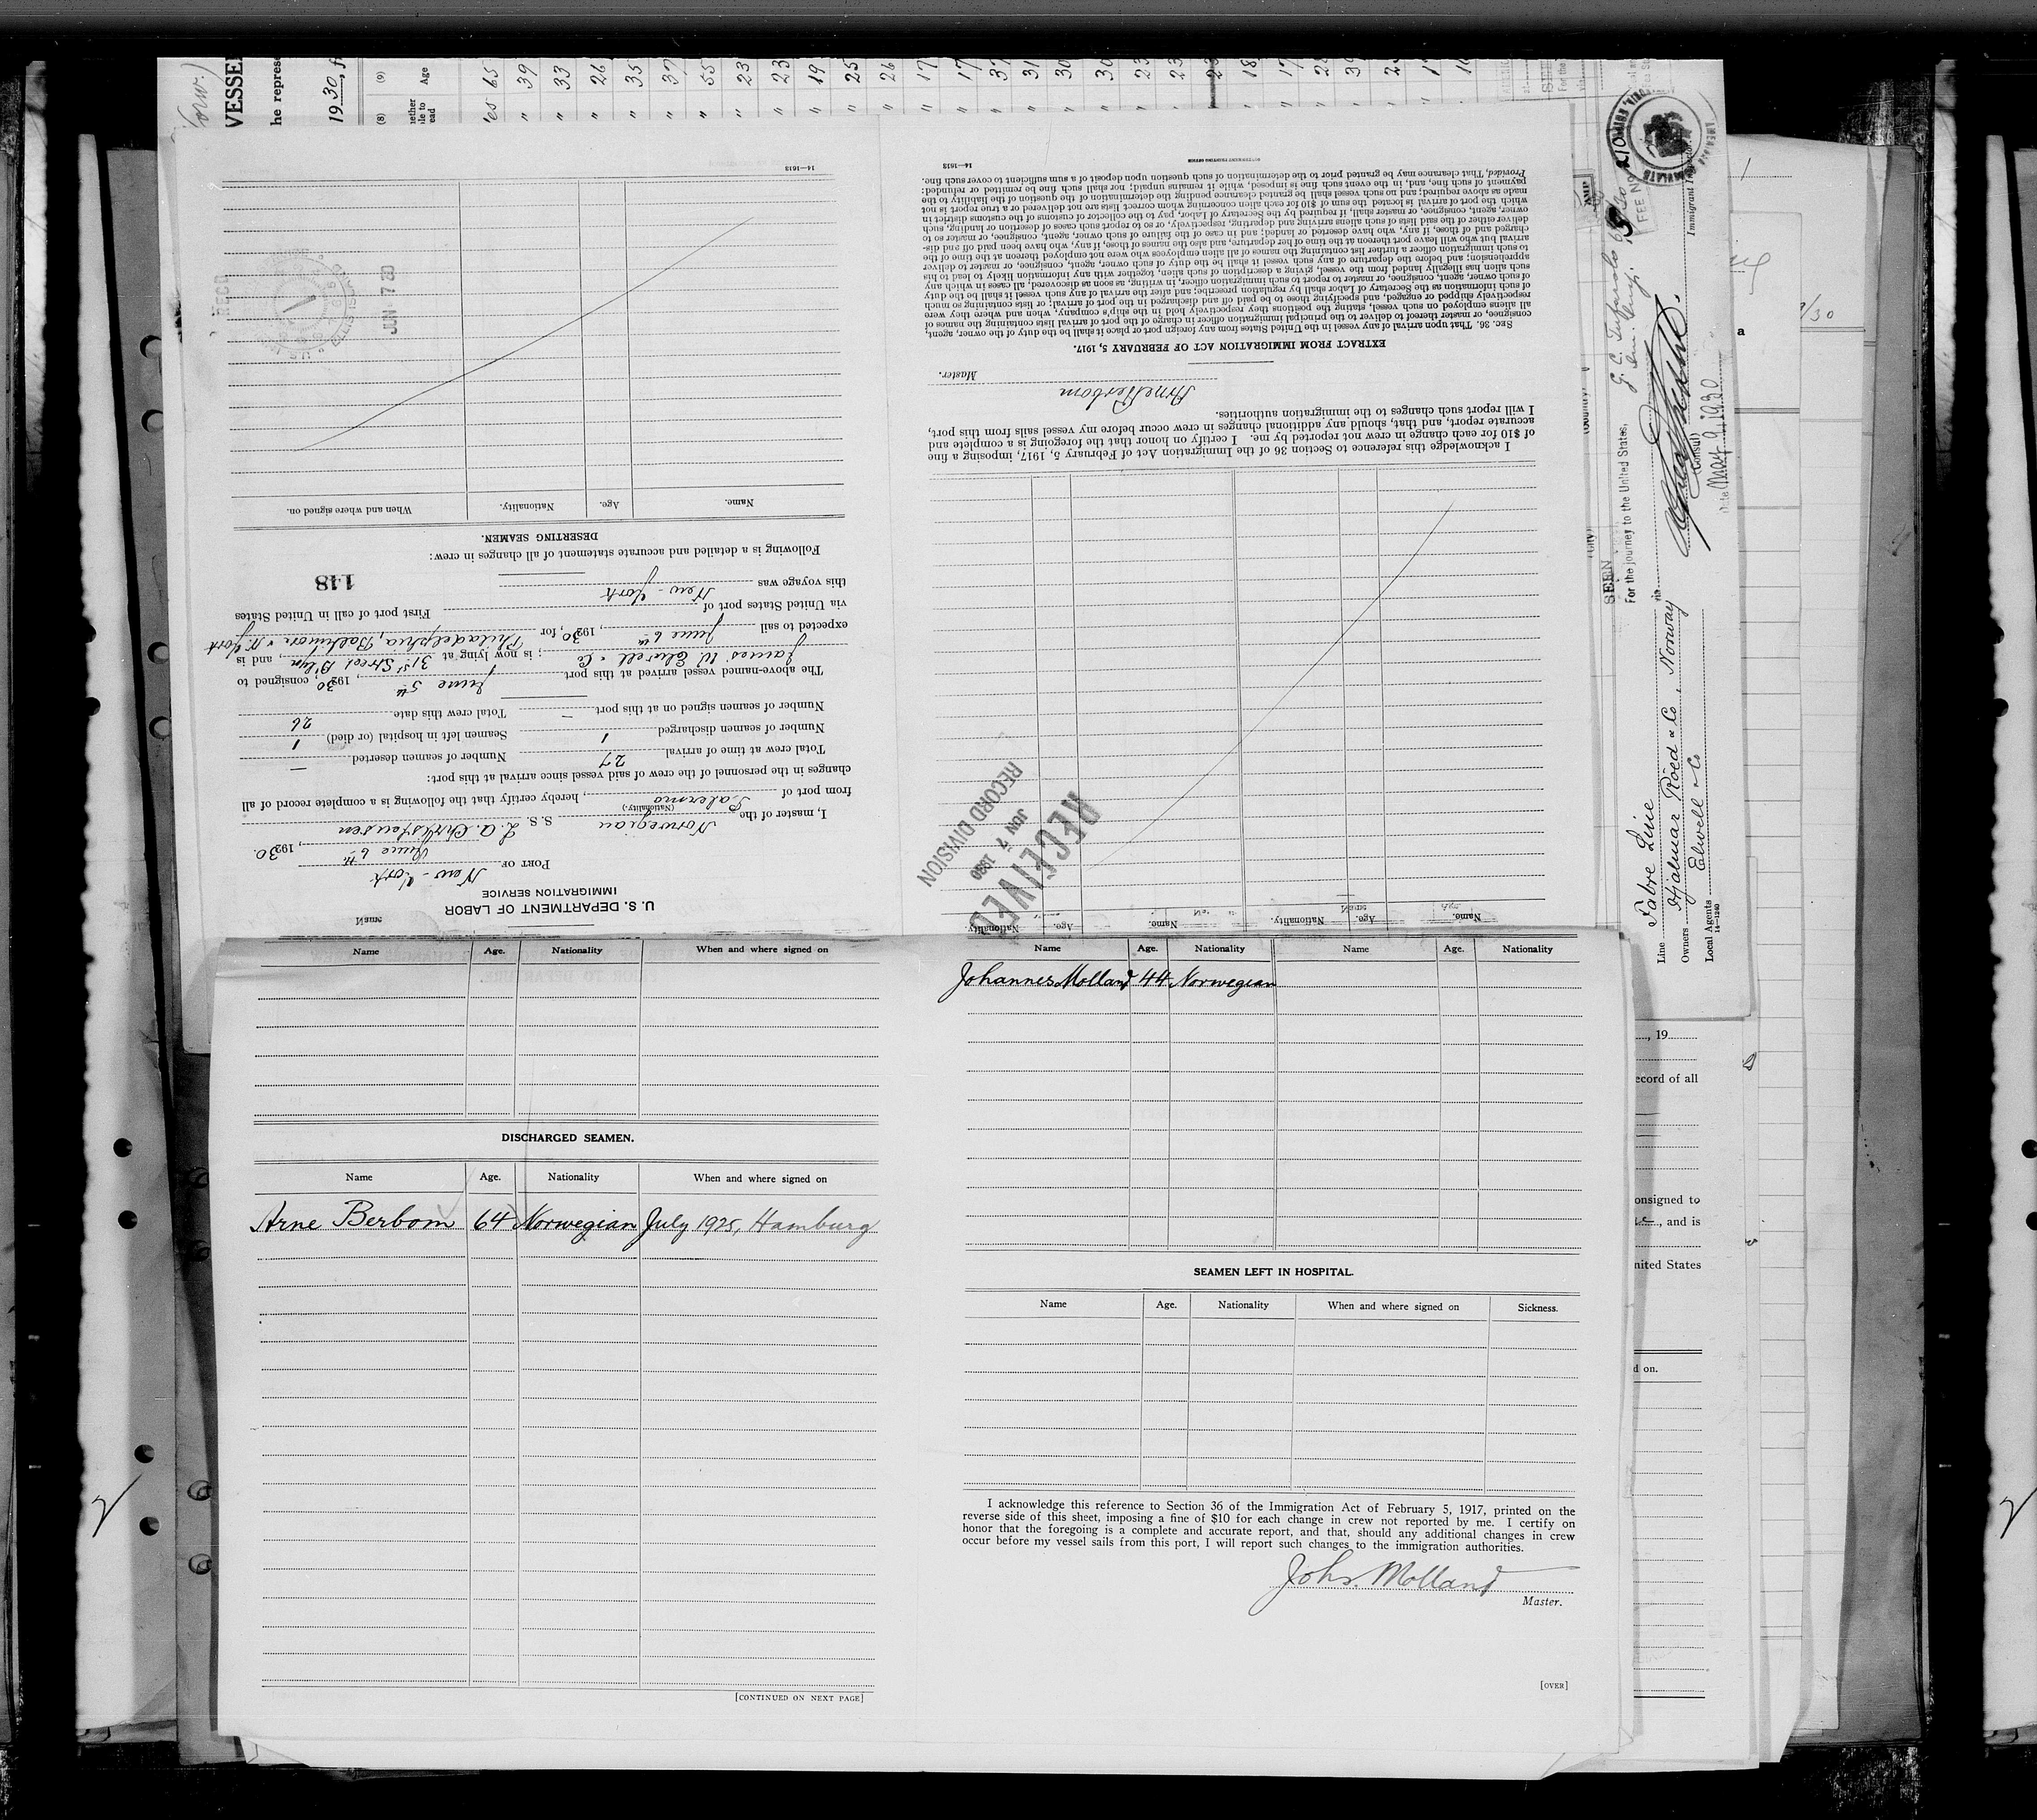 VESSEL
he represe
1930
(8)
(9)
Age
U. S. DEPARTMENT OF LABOR
IMMIGRATION SERVICE
PORT OF New-York
June 6th, 1930.
I, master of the Norwegian S. S. L. A. Christensen
(Nationality.)
from port of Palermo, hereby certify that the following is a complete record of all
changes in the personnel of the crew of said vessel since arrival at this port:
Total crew at time of arrival 27 Number of seamen deserted —
Number of seamen discharged 1 Seamen left in hospital (or died) 1
Number of seamen signed on at this port — Total crew this date 26
The above-named vessel arrived at this port June 5th, 1930, consigned to
James W. Elwell & Co; is now lying at 31st Street B'lyn, and is
expected to sail June 6th, 1930, for Philadelphia, Baltimore & N. York
via United States port of First port of call in United States
this voyage was New-York
148
Following is a detailed and accurate statement of all changes in crew:
DESERTING SEAMEN.
Name. Age. Nationality. When and where signed on.
JUN 7
14—1613
Name. Age. Nationality. Name. Age. Nationality
RECEIVED
JUN 7 1930
RECORD DIVISION
I acknowledge this reference to Section 36 of the Immigration Act of February 5, 1917, imposing a fine
of $10 for each change in crew not reported by me. I certify on honor that the foregoing is a complete and
accurate report, and that, should any additional changes in crew occur before my vessel sails from this port,
I will report such changes to the immigration authorities.
Arne Berbom
Master.
EXTRACT FROM IMMIGRATION ACT OF FEBRUARY 5, 1917.
SEC. 36. That upon arrival of any vessel in the United States from any foreign port or place it shall be the duty of the owner, agent,
consignee, or master thereof to deliver to the principal immigration officer in charge of the port of arrival lists containing the names of
all aliens employed on such vessel, stating the positions they respectively hold in the ship's company, when and where they were
respectively shipped or engaged, and specifying those to be paid off and discharged in the port of arrival; or lists containing so much
of such information as the Secretary of Labor shall by regulation prescribe; and after the arrival of any such vessel it shall be the duty
of such owner, agent, consignee, or master to report to such immigration officer, in writing, as soon as discovered, all cases in which any
such alien has illegally landed from the vessel, giving a description of such alien, together with any information likely to lead to his
apprehension; and before the departure of any such vessel it shall be the duty of such owner, agent, consignee, or master to deliver
to such immigration officer a further list containing the names of all alien employees who were not employed thereon at the time of the
arrival but who will leave port thereon at the time of her departure, and also the names of those, if any, who have been paid off and dis-
charged and of those, if any, who have deserted or landed; and in case of the failure of such owner, agent, consignee, or master so to
deliver either of the said lists of such aliens arriving and departing, respectively, or so to report such cases of desertion or landing, such
owner, agent, consignee, or master shall, if required by the Secretary of Labor, pay to the collector of customs of the customs district in
which the port of arrival is located the sum of $10 for each alien concerning whom correct lists are not delivered or a true report is not
made as above required; and no such vessel shall be granted clearance pending the determination of the question of the liability to the
payment of such fine, and, in the event such fine is imposed, while it remains unpaid; nor shall such fine be remitted or refunded:
Provided, That clearance may be granted prior to the determination of such question upon deposit of a sum sufficient to cover such fine.
14—1613
SEEN
For the journey to the United States,
FEE NO.
Consul
Date May 9, 1930
Immigrant Inspector
Line Fabre Line
Owners Hjalmar Röed & Co, Norway
Local Agents Elwell & Co
14—1240
Name Age. Nationality When and where signed on
DISCHARGED SEAMEN.
Name Age. Nationality When and where signed on
Arne Berbom 64 Norwegian July 1925, Hamburg
[CONTINUED ON NEXT PAGE]
Name Age. Nationality Name Age. Nationality
Johannes Molland 44 Norwegian
SEAMEN LEFT IN HOSPITAL.
Name Age. Nationality When and where signed on Sickness.
I acknowledge this reference to Section 36 of the Immigration Act of February 5, 1917, printed on the
reverse side of this sheet, imposing a fine of $10 for each change in crew not reported by me. I certify on
honor that the foregoing is a complete and accurate report, and that, should any additional changes in crew
occur before my vessel sails from this port, I will report such changes to the immigration authorities.
Johs. Molland
Master.
[OVER]
, 19
ecord of all
onsigned to
, and is
nited States
d on.